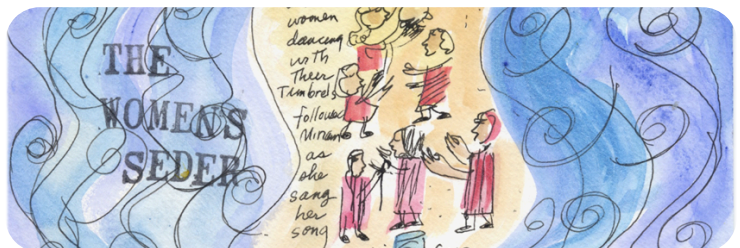 THE
WOMEN'S
SEDER
women
dancing
with
their
Timbrels
followed
Miriam
as
she
sang
her
song